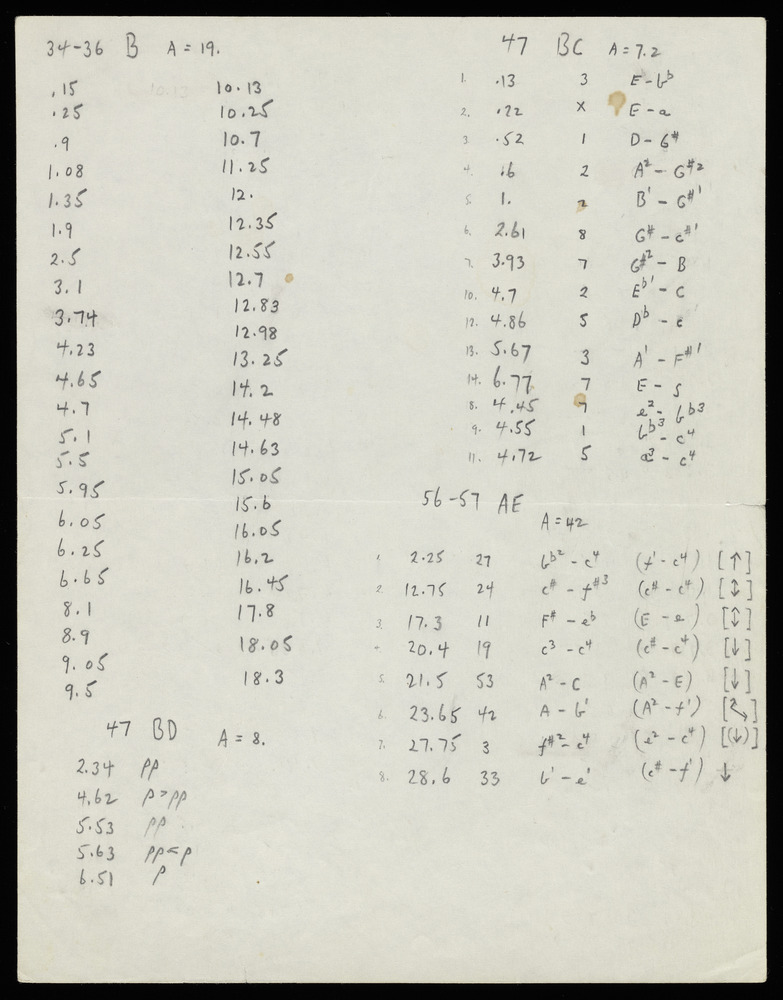 34-36 B A = 19.
.15
.25
.9
1.08
1.35
1.9
2.5
3.1
3.74
4.23
4.65
4.7
5.1
5.5
5.95
6.05
6.25
6.65
8.1
8.9
9.05
9.5
10.13
10.25
10.7
11.25
12.
12.35
12.55
12.7
12.83
12.98
13.25
14.2
14.48
14.63
15.05
15.6
16.05
16.2
16.45
17.8
18.05
18.3
47 BD A = 8.
2.34 pp
4.62 p > pp
5.53 pp
5.63 pp < p
6.51 p
47 BC A = 7.2
1. .13 3 E - b♭
2. .22 x E - a
3. .52 1 D - G#
4. .6 2 A² - G#²
5. 1. 2 B' - G#'
6. 2.61 8 G# - c#'
7. 3.93 7 G#² - B
10. 4.7 2 E♭' - C
12. 4.86 5 D♭ - c
13. 5.67 3 A' - F#'
14. 6.77 7 E -
8. 4.45 7 e² - b♭³
9. 4.55 1 b♭³ - c⁴
11. 4.72 5 a³ - c⁴
56-57 AE
A = 42
1. 2.25 27 b♭² - c⁴ (f' - c⁴) [↑]
2. 12.75 24 c# - f#³ (c# - c⁴) [↕]
3. 17.3 11 F# - e♭ (E - e) [↕]
20.4 19 c³ - c⁴ (c# - c⁴) [↓]
5. 21.5 53 A² - C (A² - E) [↓]
6. 23.65 42 A - b' (A² - f')
7. 27.75 3 f#² - c⁴ (e² - c⁴) [(↓)]
8. 28.6 33 b' - e' (c# - f') ↓